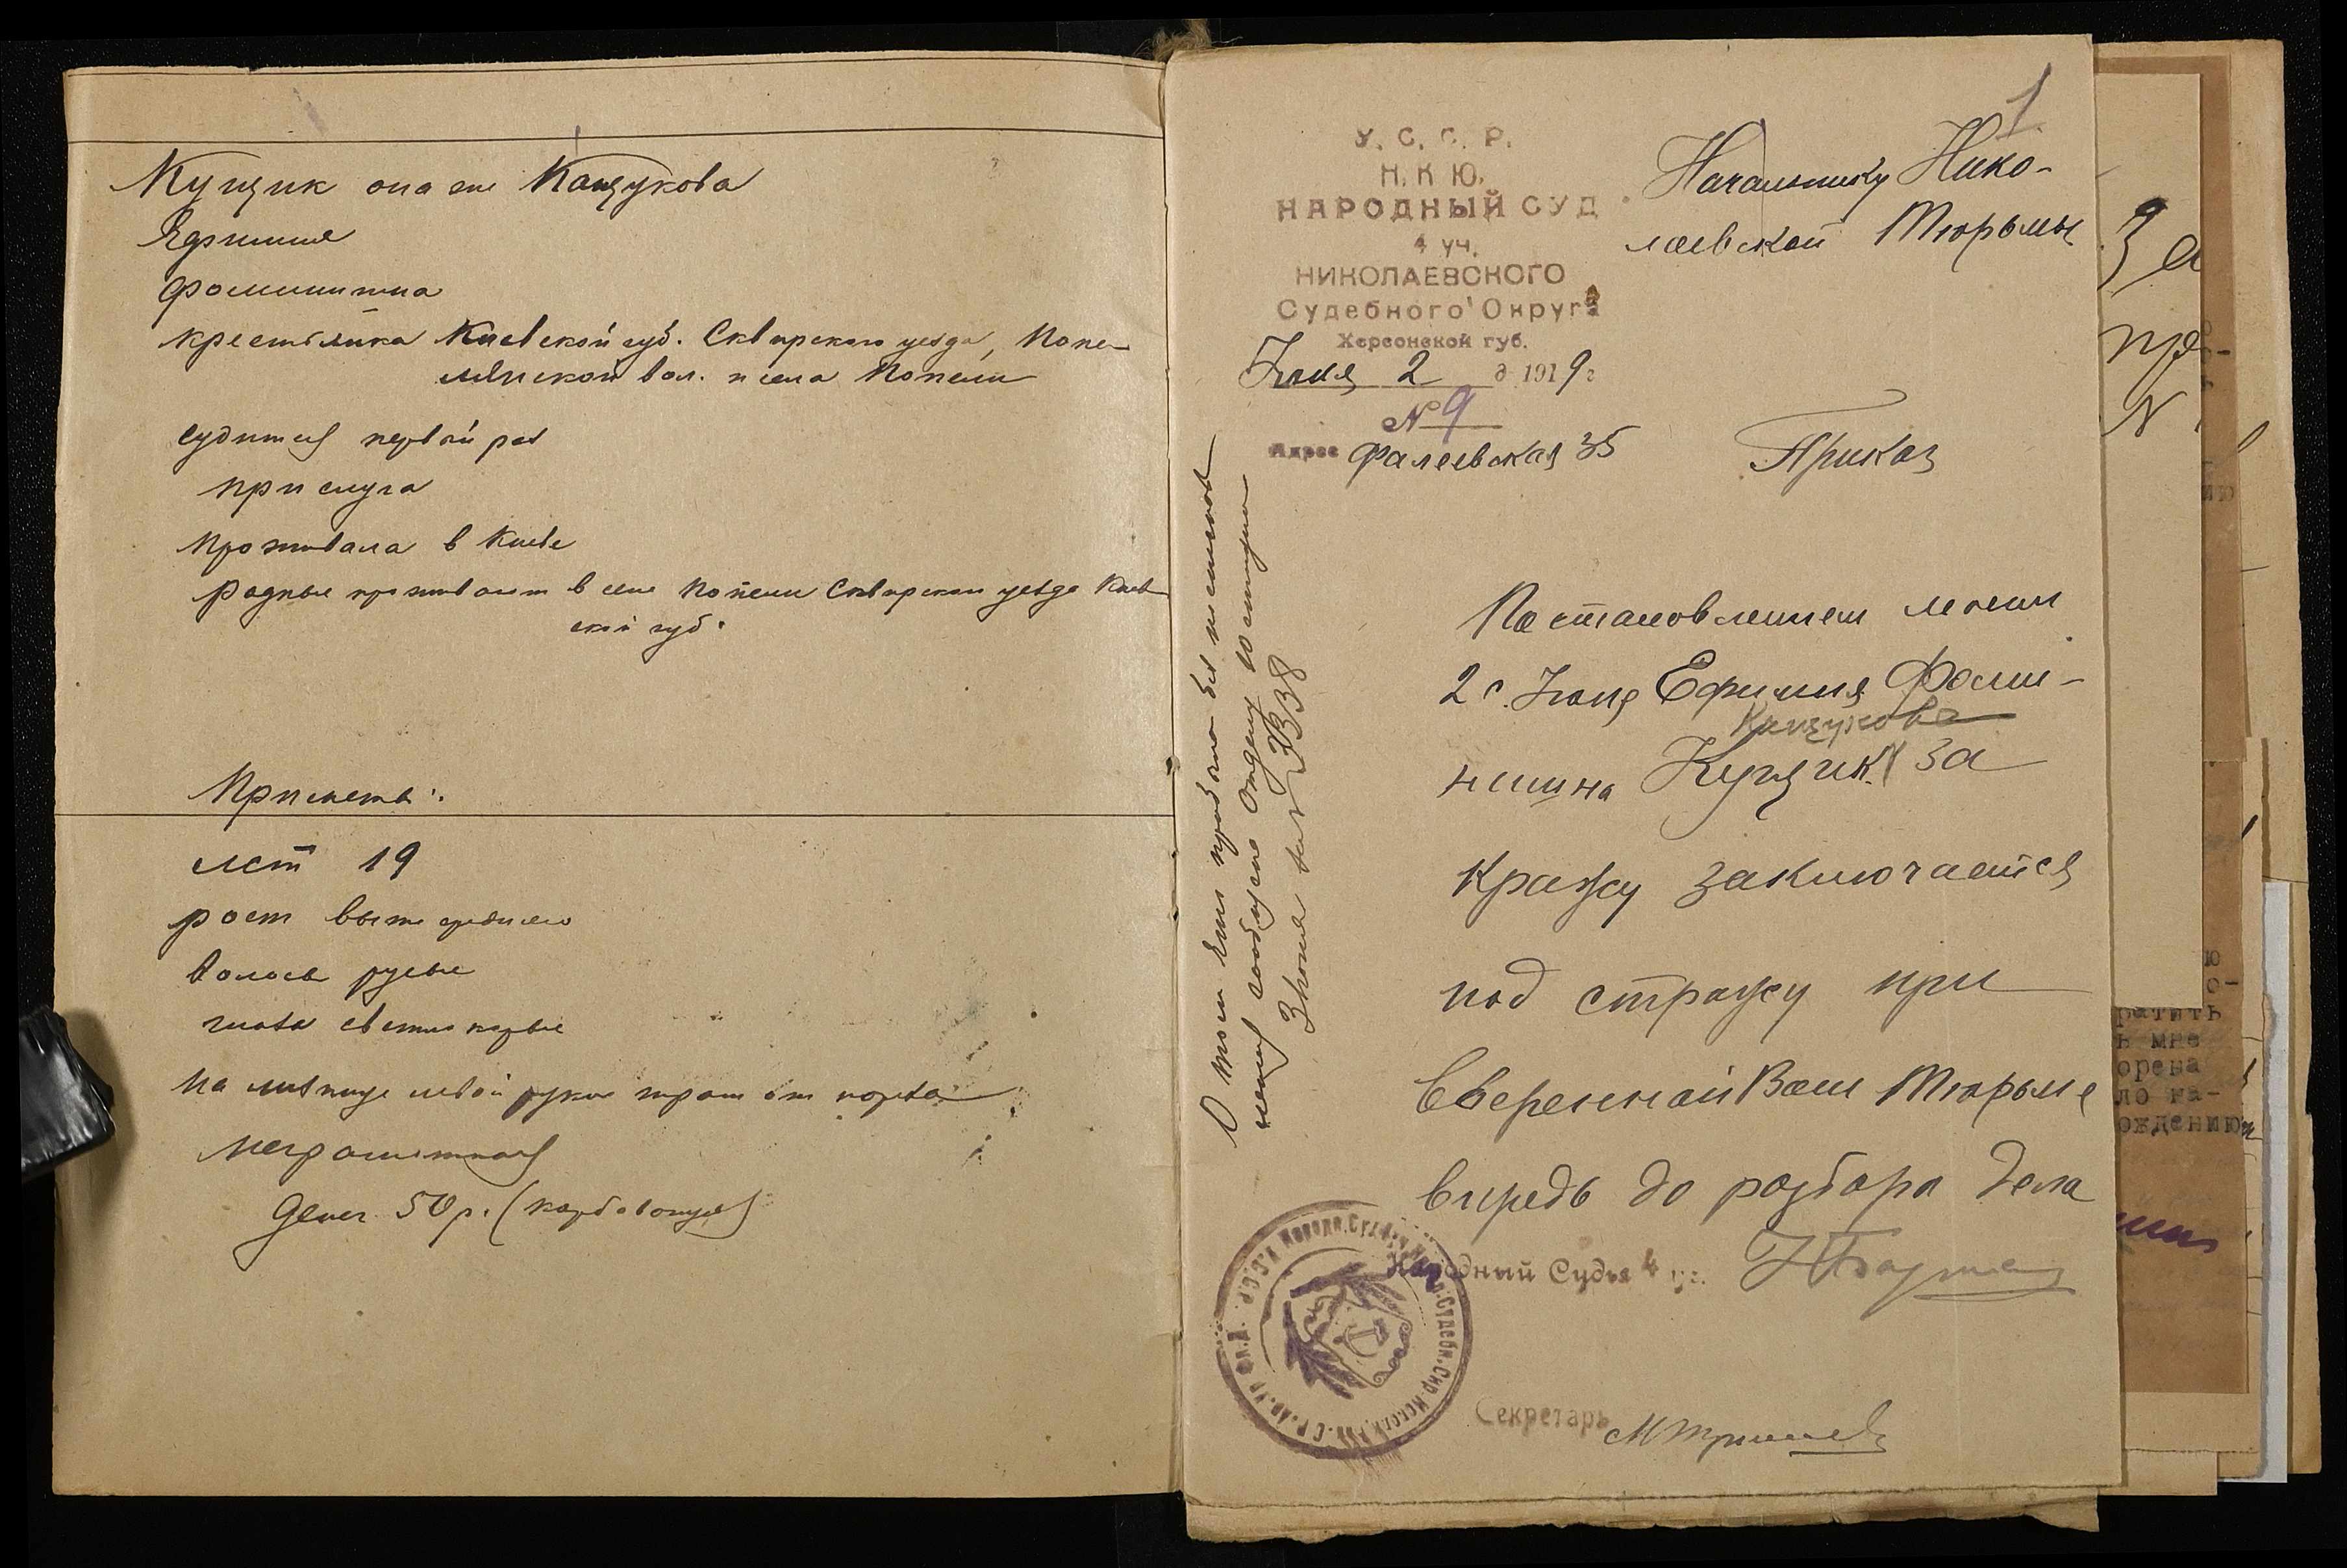 Кущик она же Кащукова
Ефимия
Фоминишна
крестьянка Киевской губ. Сквирского уезда, Попе-
льнской вол. и села Попельни
судится первый раз
прислуга
проживала в Киеве
родные проживают в селе Попельни Сквирского уезда Киев
ской губ.
Приметы:
лет 19
рост выше среднего
волосы русые
глаза светло карые
на мизинце левой руки шрам от пореза
неграмотная
денег 50 р. (карбованцев)
1
У. С. С. Р.
Н. К Ю.
НАРОДНЫЙ СУД
4 уч.
НИКОЛАЕВСКОГО
Судебного Округа
Херсонской губ.
Июня 2 д 1919 г
№ 9
Адрес Фалеевская 35
Начальнику Нико-
лаевской Тюрьмы
Приказ
Постановлением моим
2 с. Июня Ефимия Фоми-
Кащукова
нишна Кущик за
кражу заключается
под стражу при
вверенной Вам Тюрьме
впредь до разбора дела
Народный Судья 4 уч.
Секретарь
3 июня
3338
За
пре
N
ратить
ь мне
орева
ло на-
ождению